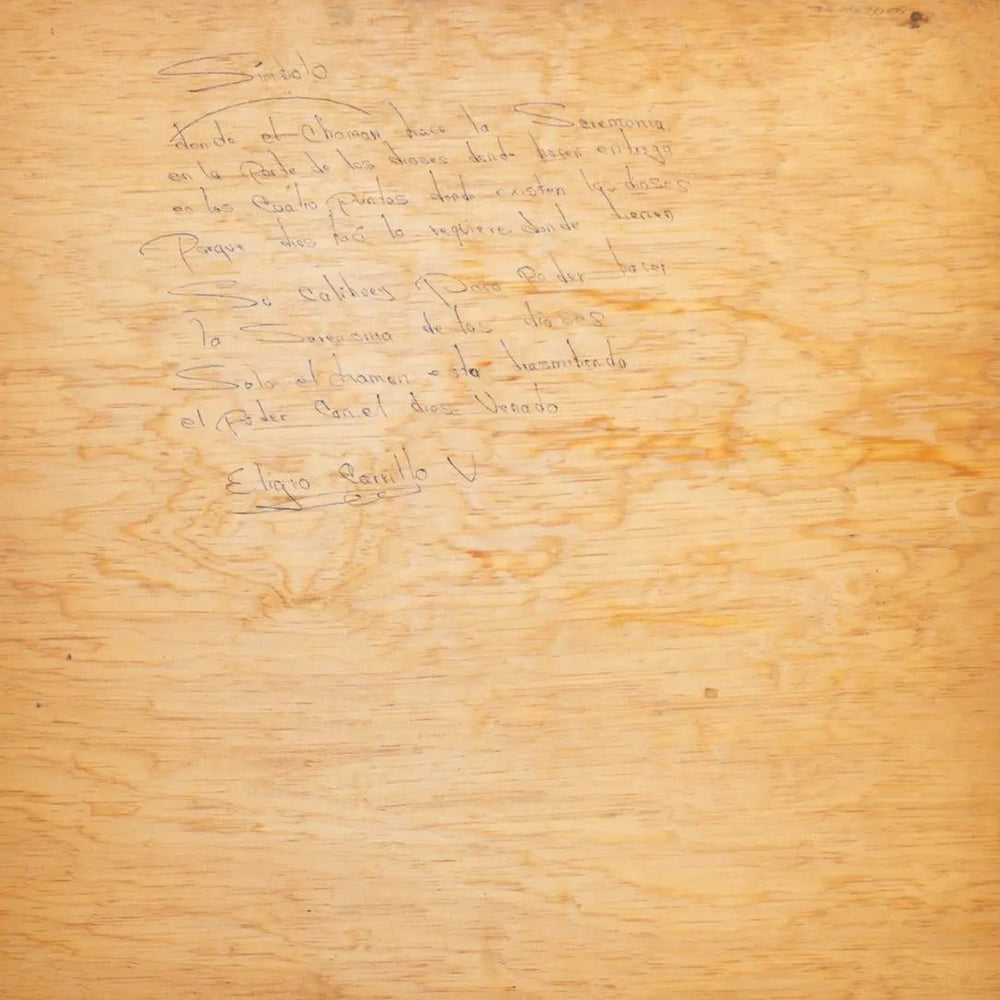 Simbolo
donde el Chaman hace la Seremonia
en la Parte de los dioses donde hasen entrega
en los Cuatro Puntos donde existen los dioses
Porque dios lo requiere donde tienen
Su Calihuey Para Poder haser
la Seremonia de los dioses
Solo el chaman esta trasmitiendo
el Poder Con el dios Venado
Eligio Carrillo V